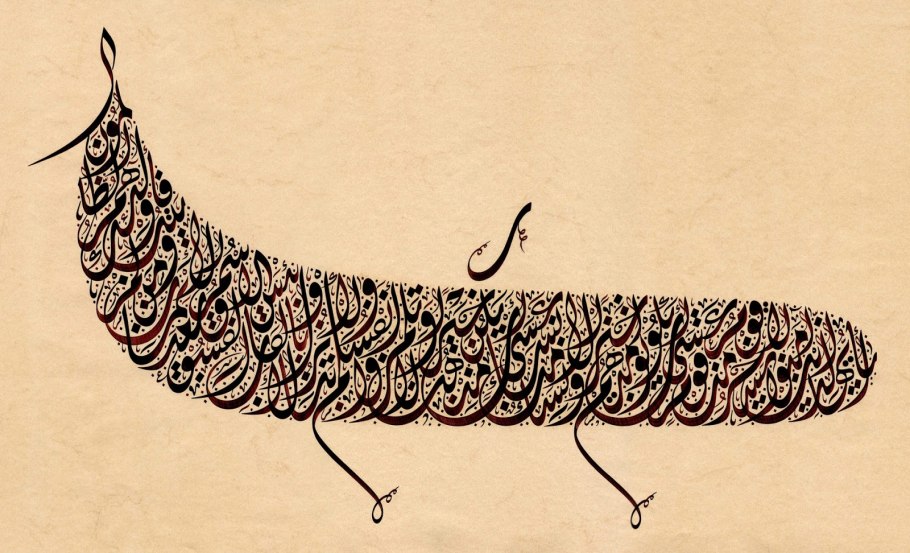 يا أيها الذين آمنوا لا يسخر قوم من قوم عسى أن يكونوا خيرا منهم ولا نساء من نساء عسى أن يكن خيرا منهن ولا تلمزوا أنفسكم ولا تنابزوا بالألقاب بئس الاسم الفسوق بعد الإيمان ومن لم يتب فأولئك هم الظالمون